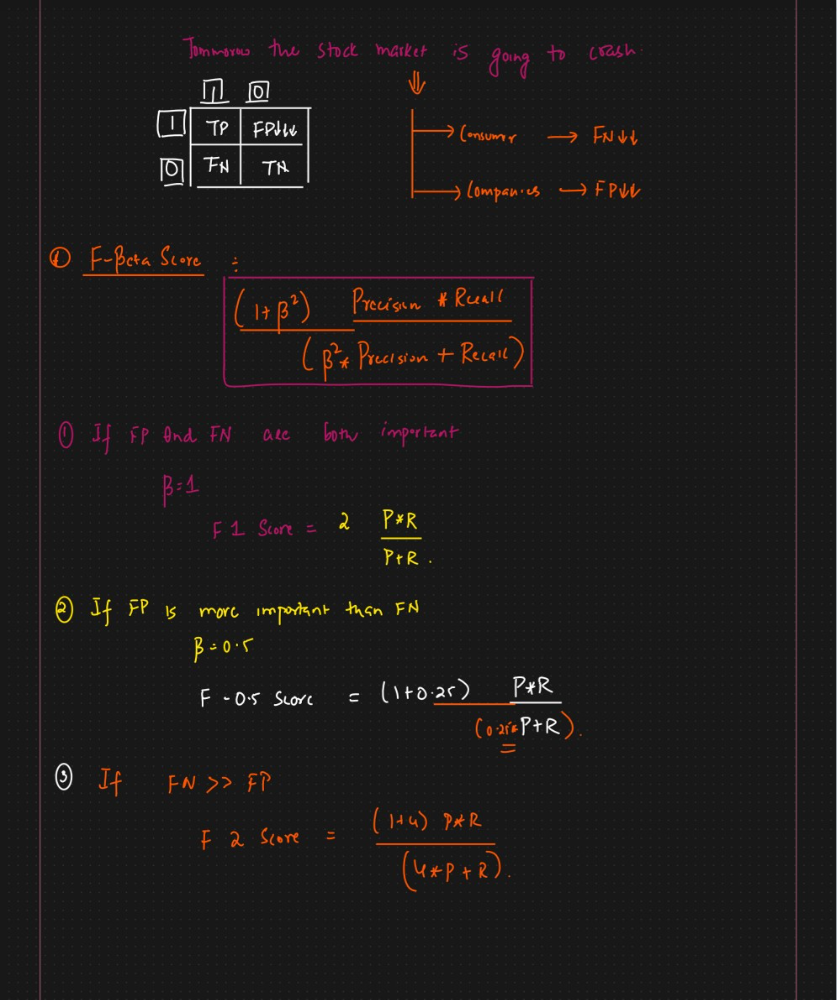 Tommorow the stock market is going to crash.
1 0
1 TP FP↓↓↓
0 FN TN
⇓
→ Consumer → FN↓↓
→ Companies → FP↓↓
① F-Beta Score ÷
(1+β²) Precision * Recall
(β² * Precision + Recall)
① If FP and FN are both important
β=1
F1 Score = 2 P*R
P+R.
② If FP is more important than FN
β=0.5
F-0.5 Score = (1+0.25) P*R
(0.25*P+R).
③ If FN >> FP
F 2 Score = (1+4) P*R
(4*P+R).